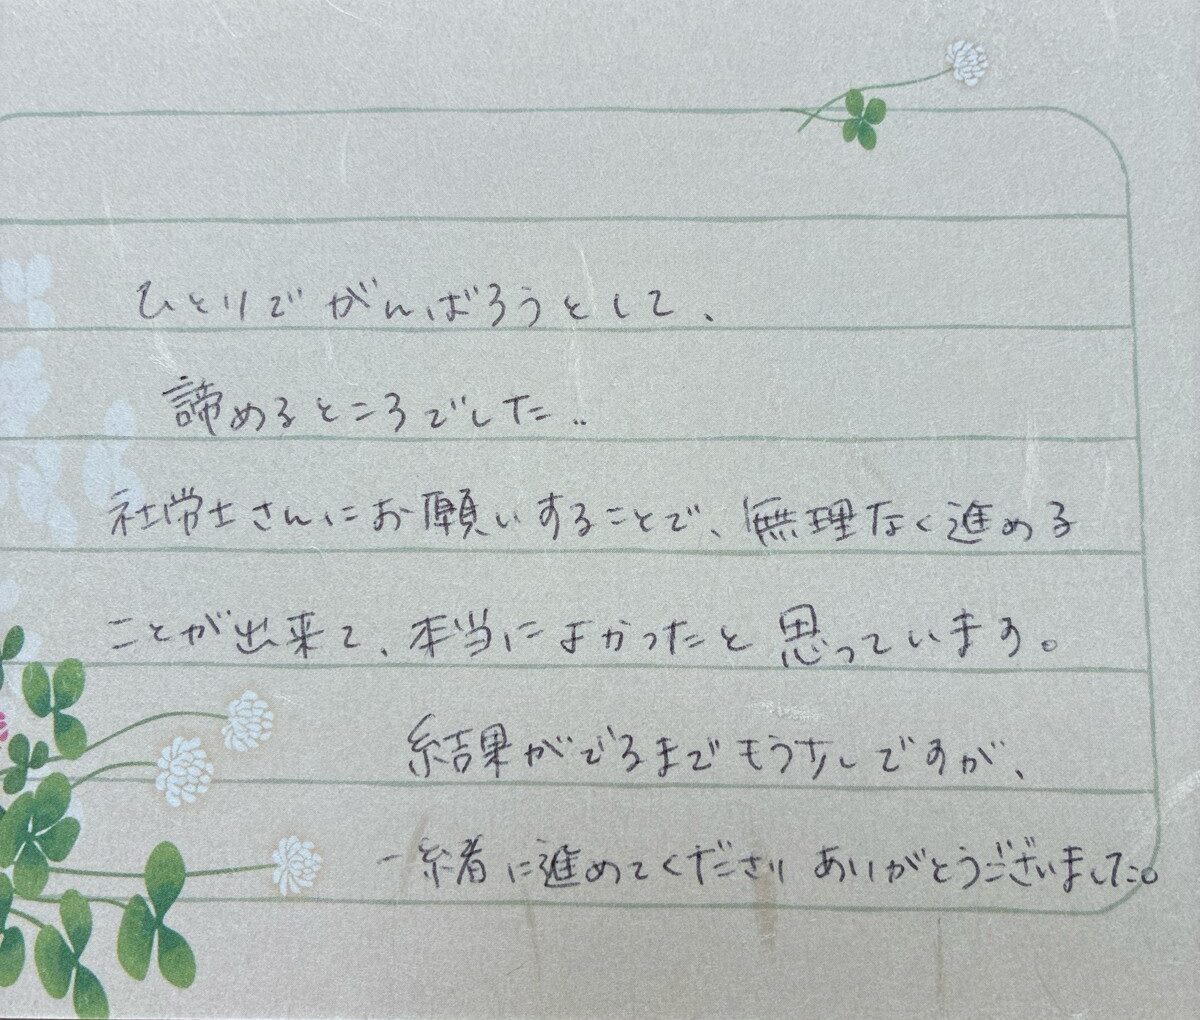 ひとりでがんばろうとして、
諦めるところでした..
社労士さんにお願いすることで、無理なく進める
ことが出来て、本当によかったと思っています。
結果がでるまでもう少しですが、
一緒に進めてくださりありがとうございました。